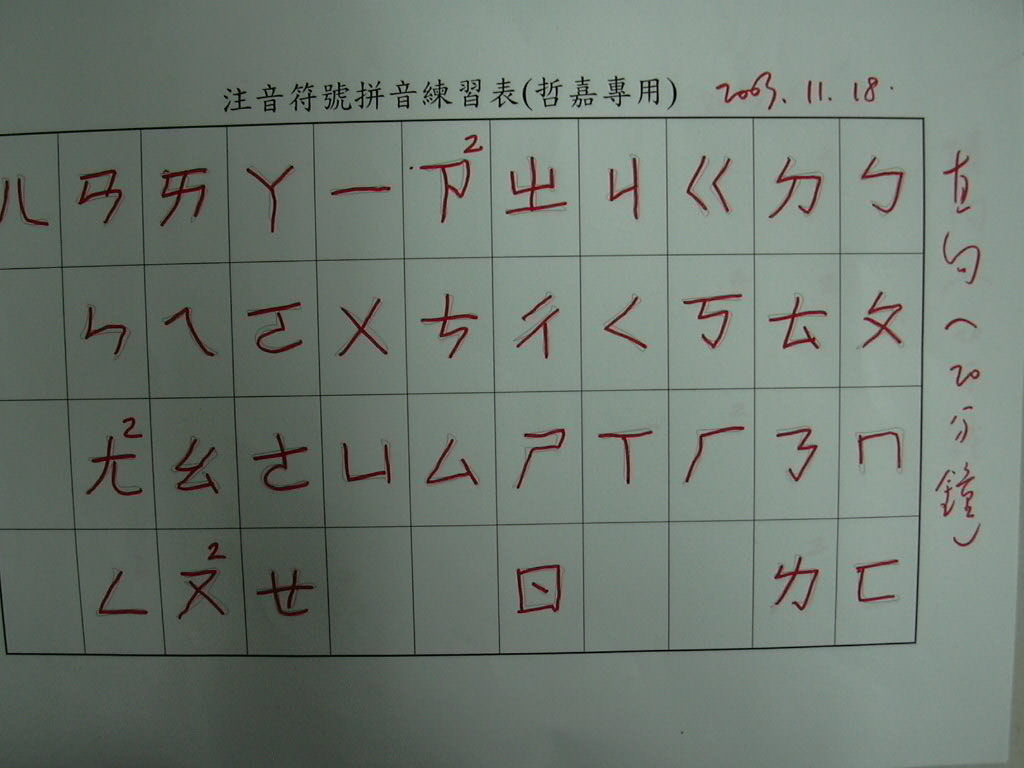 注音符號拼音練習表(哲嘉專用) 2003.11.18.
ㄦ ㄢ ㄞ ㄚ ㄧ ㄗ2 ㄓ ㄐ ㄍ ㄉ ㄅ
ㄣ ㄟ ㄛ ㄨ ㄘ ㄔ ㄑ ㄎ ㄊ ㄆ
ㄤ2 ㄠ ㄜ ㄩ ㄙ ㄕ ㄒ ㄏ ㄋ ㄇ
ㄥ ㄡ2 ㄝ ㄖ ㄌ ㄈ
直向(20分鐘)